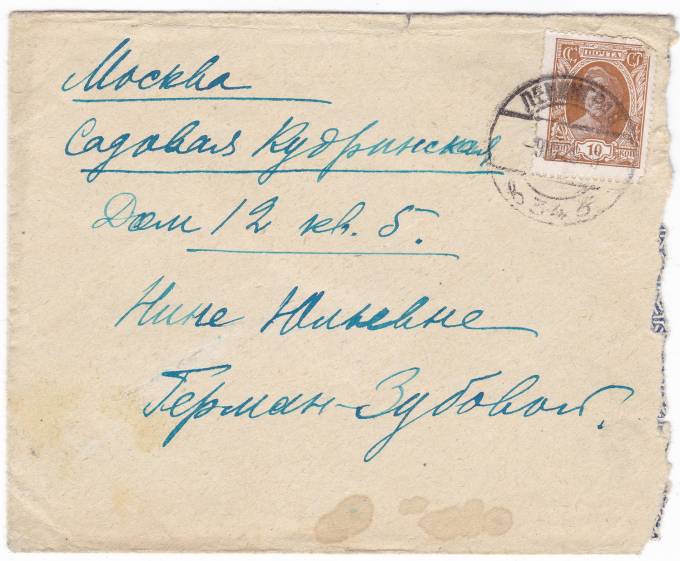 Москва
Садовая Кудринская
Дом 12 кв. 5.
Нине Юльевне
Герман-Зубовой.
ПОЧТА
10
КОП
ЛЕНИНГРАД